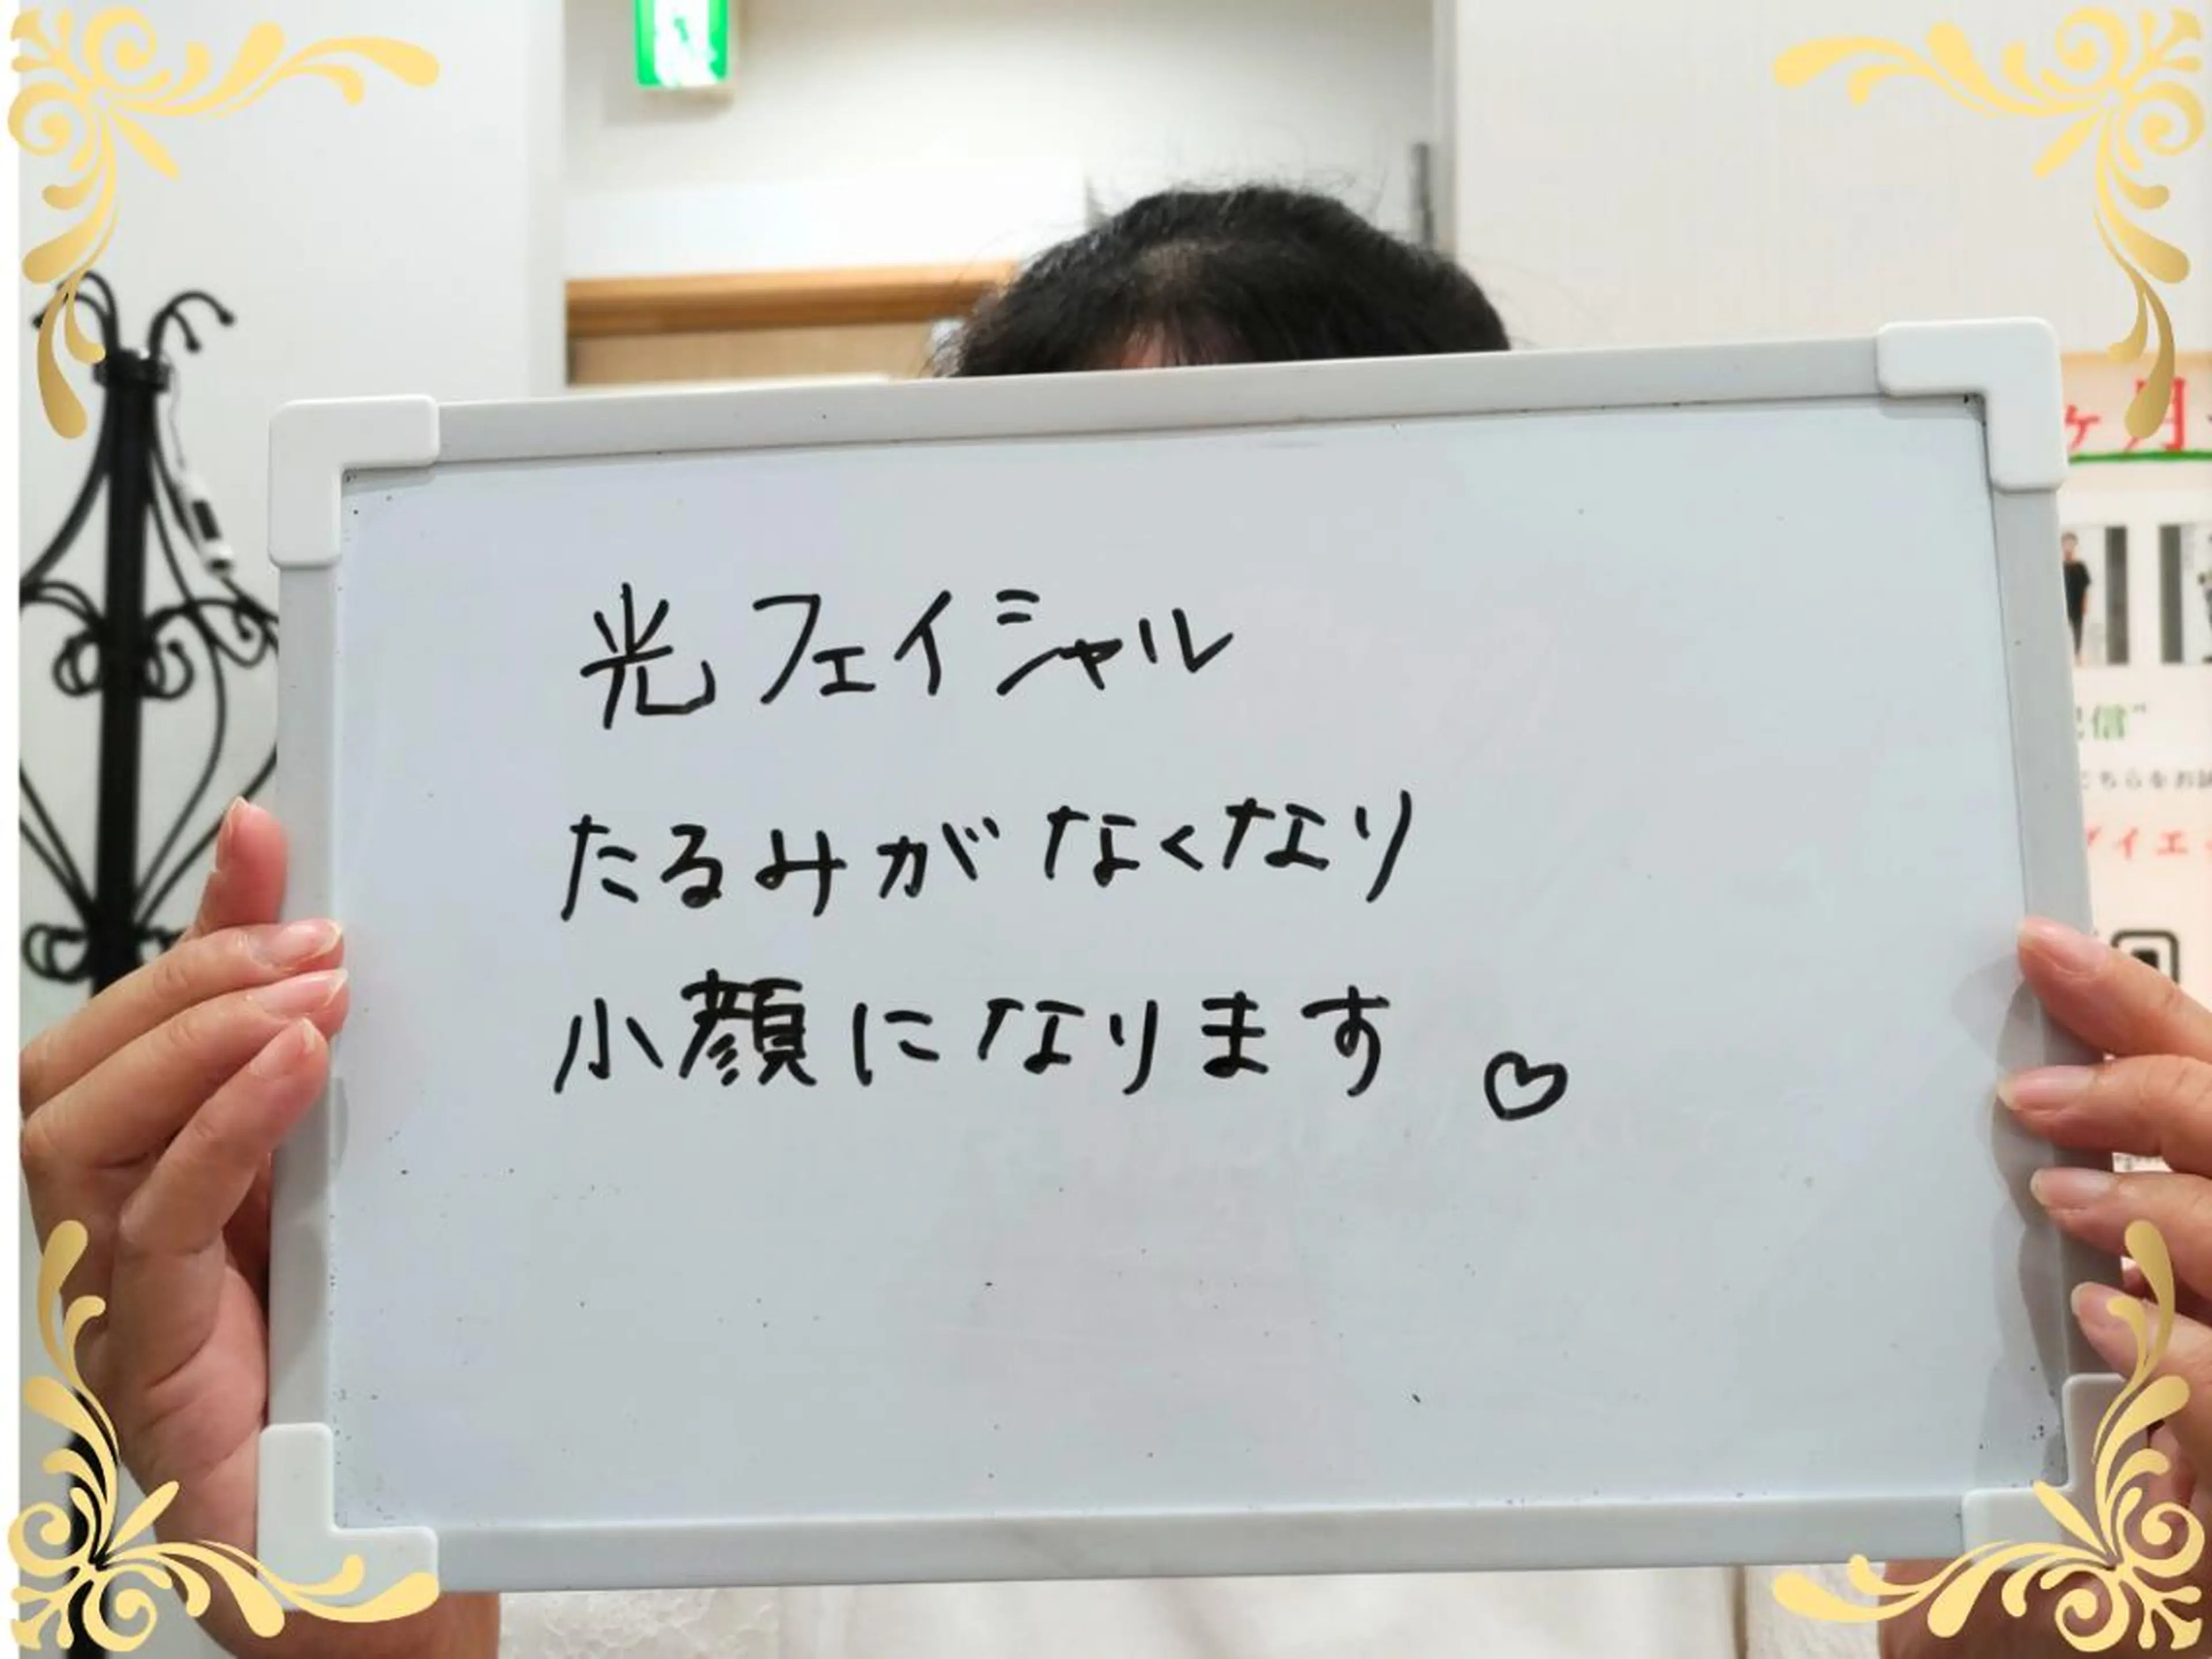 光フェイシャル
たるみがなくなり
小顔になります♡
ヶ月
信”
ちらをお試
イエ